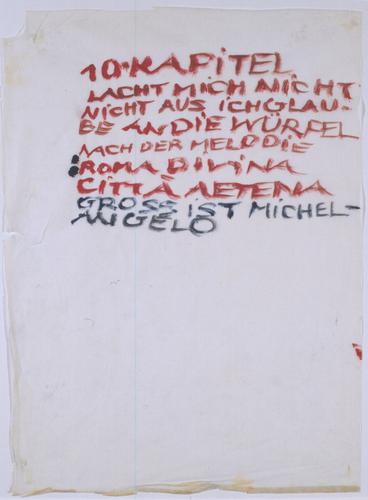 10. KAPITEL
LACHT MICH NICHT
NICHT AUS ICH GLAU-
BE AN DIE WÜRFEL
NACH DER MELODIE
: ROMA DIVINA
CITTÀ AETENA
GROSS IST MICHEL-
ANGELO